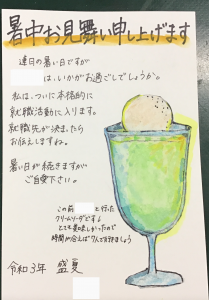 暑中お見舞い申し上げます
連日の暑い日ですが
は、いかがお過ごしでしょうか。
私は、ついに本格的に
就職活動に入ります。
就職先が決まったら
お伝えしますね。
暑い日が続きますが
ご自愛下さい。
この前 と行った
クリームソーダです♪
とても美味しかったので
時間が合えば 行きましょう
令和3年 盛夏